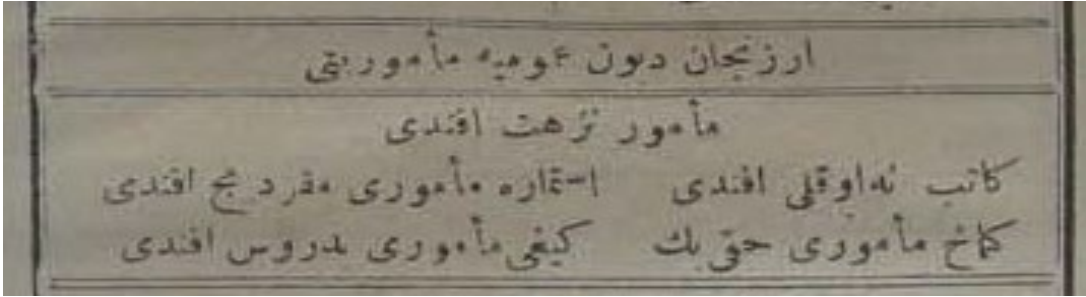 ارزنجان ديون عموميه مأموريتى
مأمور نزهت افندى
كاتب نه‌اوقلى افندى استماره مأمورى مقرديج افندى
كماخ مأمورى حقى بك كيغى مأمورى بدروس افندى